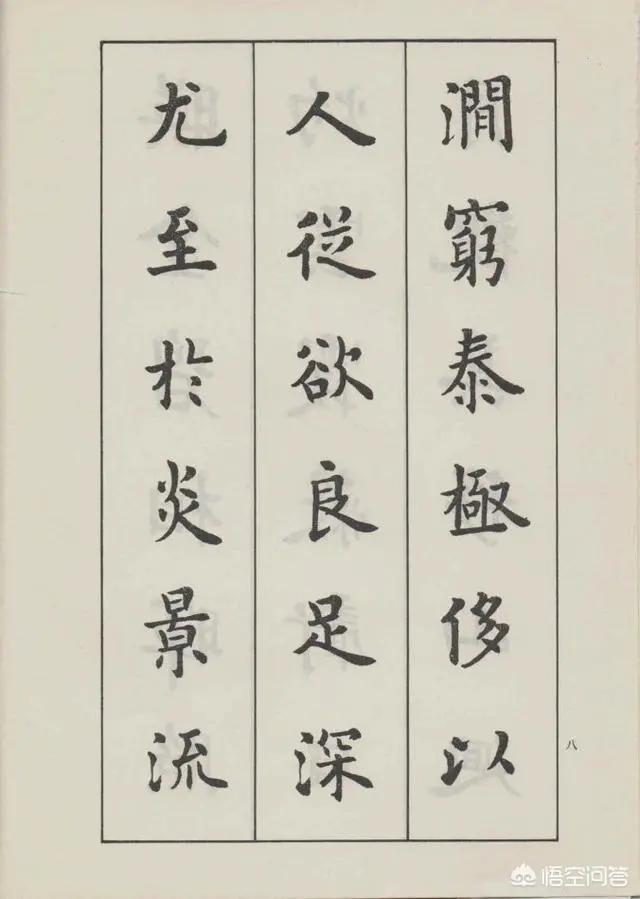 澗窮泰極侈以
人從欲良足深
尤至於炎景流
八
悟空问答